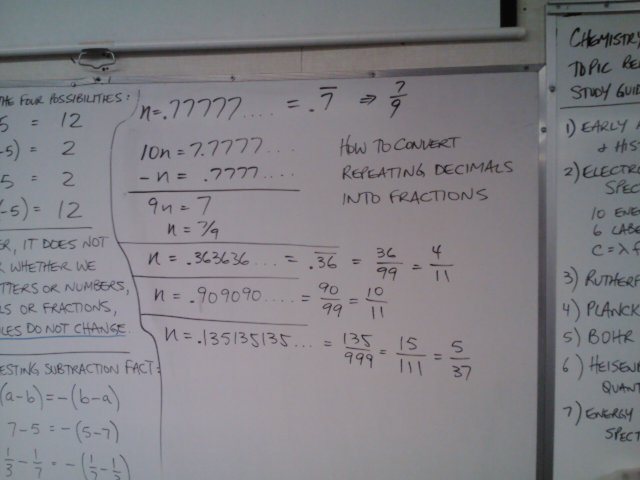 THE FOUR POSSIBILITIES:
5 = 12
-5) = 2
5 = 2
(-5) = 12
, IT DOES NOT
WHETHER WE
OR NUMBERS,
OR FRACTIONS,
DO NOT CHANGE.
SUBTRACTION FACT:
(a-b) = -(b-a)
7-5 = -(5-7)
1/3 - 1/7 = -(1/7 - 1/3)
n = .77777.... = .7̅ ⇒ 7/9
10n = 7.7777...
-n = .7777....
9n = 7
n = 7/9
HOW TO CONVERT
REPEATING DECIMALS
INTO FRACTIONS
n = .363636.... = .3̅6̅ = 36/99 = 4/11
n = .909090.... = 90/99 = 10/11
n = .135135135... = 135/999 = 15/111 = 5/37
CHEMISTRY
TOPIC
STUDY
1) EARLY
&
2)
10
6
C = λ
3)
4) PLANCK
5) BOHR
6)
7) ENERGY